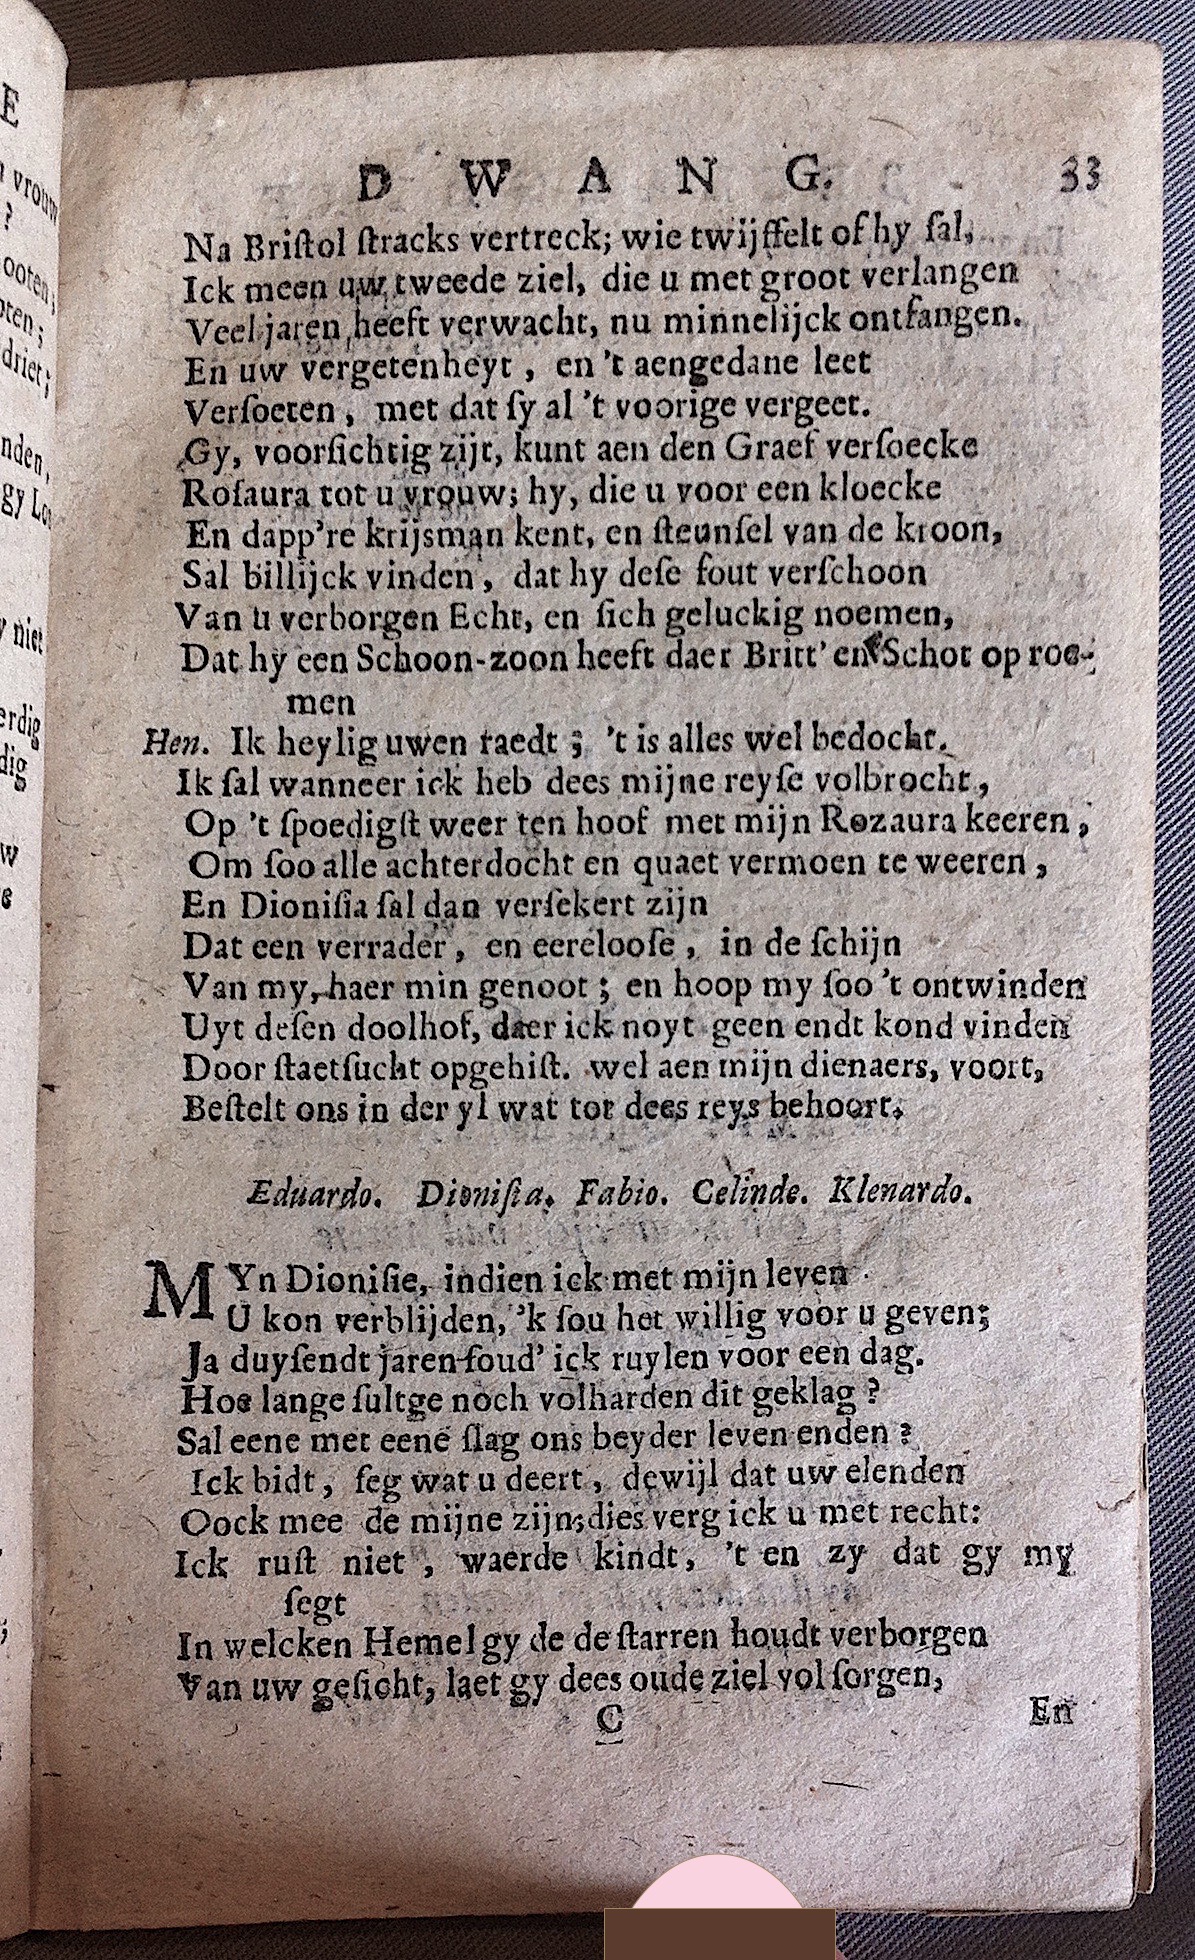 DWANG. 33
Na Briſtol ſtracks vertreck; wie twijffelt of hy ſal,
Ick meen uw tweede ziel, die u met groot verlangen
Veel jaren heeft verwacht, nu minnelijck ontfangen.
En uw vergetenheyt, en 't aengedane leet
Verſoeten, met dat ſy al 't voorige vergeet.
Gy, voorſichtig zijt, kunt aen den Graef verſoecke
Roſaura tot u vrouw; hy, die u voor een kloecke
En dapp're krijsman kent, en ſteunſel van de kroon,
Sal billijck vinden, dat hy deſe fout verſchoon
Van u verborgen Echt, en ſich geluckig noemen,
Dat hy een Schoon-zoon heeft daer Britt' en Schot op roe-
men
Hen. Ik heylig uwen raedt; 't is alles wel bedocht.
Ik ſal wanneer ick heb dees mijne reyſe volbrocht,
Op 't ſpoedigſt weer ten hoof met mijn Rozaura keeren,
Om ſoo alle achterdocht en quaet vermoen te weeren,
En Dioniſia ſal dan verſekert zijn
Dat een verrader, en eerelooſe, in de ſchijn
Van my, haer min genoot; en hoop my ſoo 't ontwinden
Uyt deſen doolhof, daer ick noyt geen endt kond vinden
Door ſtaetſucht opgehiſt. wel aen mijn dienaers, voort,
Beſtelt ons in der yl wat tot dees reys behoort.
Eduardo. Dioniſia. Fabio. Celinde. Klenardo.
MYn Dioniſie, indien ick met mijn leven
U kon verblijden, 'k ſou het willig voor u geven;
Ja duyſendt jaren ſoud' ick ruylen voor een dag.
Hoe lange ſultge noch volharden dit geklag?
Sal eene met eene ſlag ons beyder leven enden?
Ick bidt, ſeg wat u deert, dewijl dat uw elenden
Oock mee de mijne zijn; dies verg ick u met recht:
Ick ruſt niet, waerde kindt, 't en zy dat gy my
ſegt
In welcken Hemel gy de de ſtarren houdt verborgen
Van uw geſicht, laet gy dees oude ziel vol ſorgen,
C En